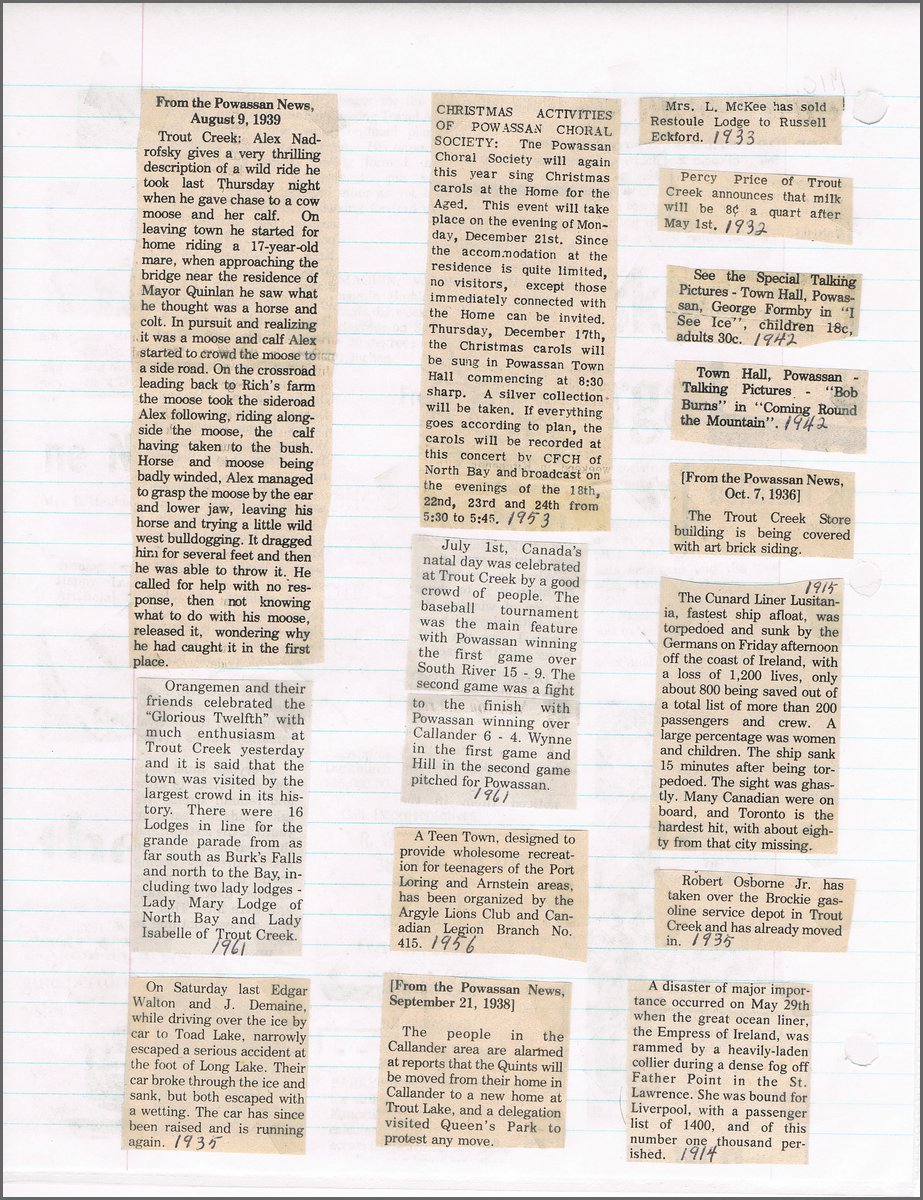 From the Powassan News,
August 9, 1939
Trout Creek: Alex Nad-
rofsky gives a very thrilling
description of a wild ride he
took last Thursday night
when he gave chase to a cow
moose and her calf. On
leaving town he started for
home riding a 17-year-old
mare, when approaching the
bridge near the residence of
Mayor Quinlan he saw what
he thought was a horse and
colt. In pursuit and realizing
it was a moose and calf Alex
started to crowd the moose to
a side road. On the crossroad
leading back to Rich's farm
the moose took the sideroad
Alex following, riding along-
side the moose, the calf
having taken to the bush.
Horse and moose being
badly winded, Alex managed
to grasp the moose by the ear
and lower jaw, leaving his
horse and trying a little wild
west bulldogging. It dragged
him for several feet and then
he was able to throw it. He
called for help with no res-
ponse, then not knowing
what to do with his moose,
released it, wondering why
he had caught it in the first
place.
Orangemen and their
friends celebrated the
"Glorious Twelfth" with
much enthusiasm at
Trout Creek yesterday
and it is said that the
town was visited by the
largest crowd in its his-
tory. There were 16
Lodges in line for the
grande parade from as
far south as Burk's Falls
and north to the Bay, in-
cluding two lady lodges -
Lady Mary Lodge of
North Bay and Lady
Isabelle of Trout Creek.
1961
On Saturday last Edgar
Walton and J. Demaine,
while driving over the ice by
car to Toad Lake, narrowly
escaped a serious accident at
the foot of Long Lake. Their
car broke through the ice and
sank, but both escaped with
a wetting. The car has since
been raised and is running
again. 1935
CHRISTMAS ACTIVITIES
OF POWASSAN CHORAL
SOCIETY: The Powassan
Choral Society will again
this year sing Christmas
carols at the Home for the
Aged. This event will take
place on the evening of Mon-
day, December 21st. Since
the accommodation at the
residence is quite limited,
no visitors, except those
immediately connected with
the Home can be invited.
Thursday, December 17th,
the Christmas carols will
be sung in Powassan Town
Hall commencing at 8:30
sharp. A silver collection
will be taken. If everything
goes according to plan, the
carols will be recorded at
this concert by CFCH of
North Bay and broadcast on
the evenings of the 18th,
22nd, 23rd and 24th from
5:30 to 5:45. 1953
July 1st, Canada's
natal day was celebrated
at Trout Creek by a good
crowd of people. The
baseball tournament
was the main feature
with Powassan winning
the first game over
South River 15 - 9. The
second game was a fight
to the finish with
Powassan winning over
Callander 6 - 4. Wynne
in the first game and
Hill in the second game
pitched for Powassan.
1961
A Teen Town, designed to
provide wholesome recreat-
ion for teenagers of the Port
Loring and Arnstein areas,
has been organized by the
Argyle Lions Club and Can-
adian Legion Branch No.
415. 1956
[From the Powassan News,
September 21, 1938]
The people in the
Callander area are alarmed
at reports that the Quints will
be moved from their home in
Callander to a new home at
Trout Lake, and a delegation
visited Queen's Park to
protest any move.
Mrs. L. McKee has sold
Restoule Lodge to Russell
Eckford. 1933
Percy Price of Trout
Creek announces that milk
will be 8¢ a quart after
May 1st. 1932
See the Special Talking
Pictures - Town Hall, Powas-
san, George Formby in "I
See Ice", children 18c,
adults 30c. 1942
Town Hall, Powassan -
Talking Pictures - "Bob
Burns" in "Coming Round
the Mountain". 1942
[From the Powassan News,
Oct. 7, 1936]
The Trout Creek Store
building is being covered
with art brick siding.
1915
The Cunard Liner Lusitan-
ia, fastest ship afloat, was
torpedoed and sunk by the
Germans on Friday afternoon
off the coast of Ireland, with
a loss of 1,200 lives, only
about 800 being saved out of
a total list of more than 200
passengers and crew. A
large percentage was women
and children. The ship sank
15 minutes after being tor-
pedoed. The sight was ghas-
tly. Many Canadian were on
board, and Toronto is the
hardest hit, with about eigh-
ty from that city missing.
Robert Osborne Jr. has
taken over the Brockie gas-
oline service depot in Trout
Creek and has already moved
in. 1935
A disaster of major impor-
tance occurred on May 29th
when the great ocean liner,
the Empress of Ireland, was
rammed by a heavily-laden
collier during a dense fog off
Father Point in the St.
Lawrence. She was bound for
Liverpool, with a passenger
list of 1400, and of this
number one thousand per-
ished. 1914